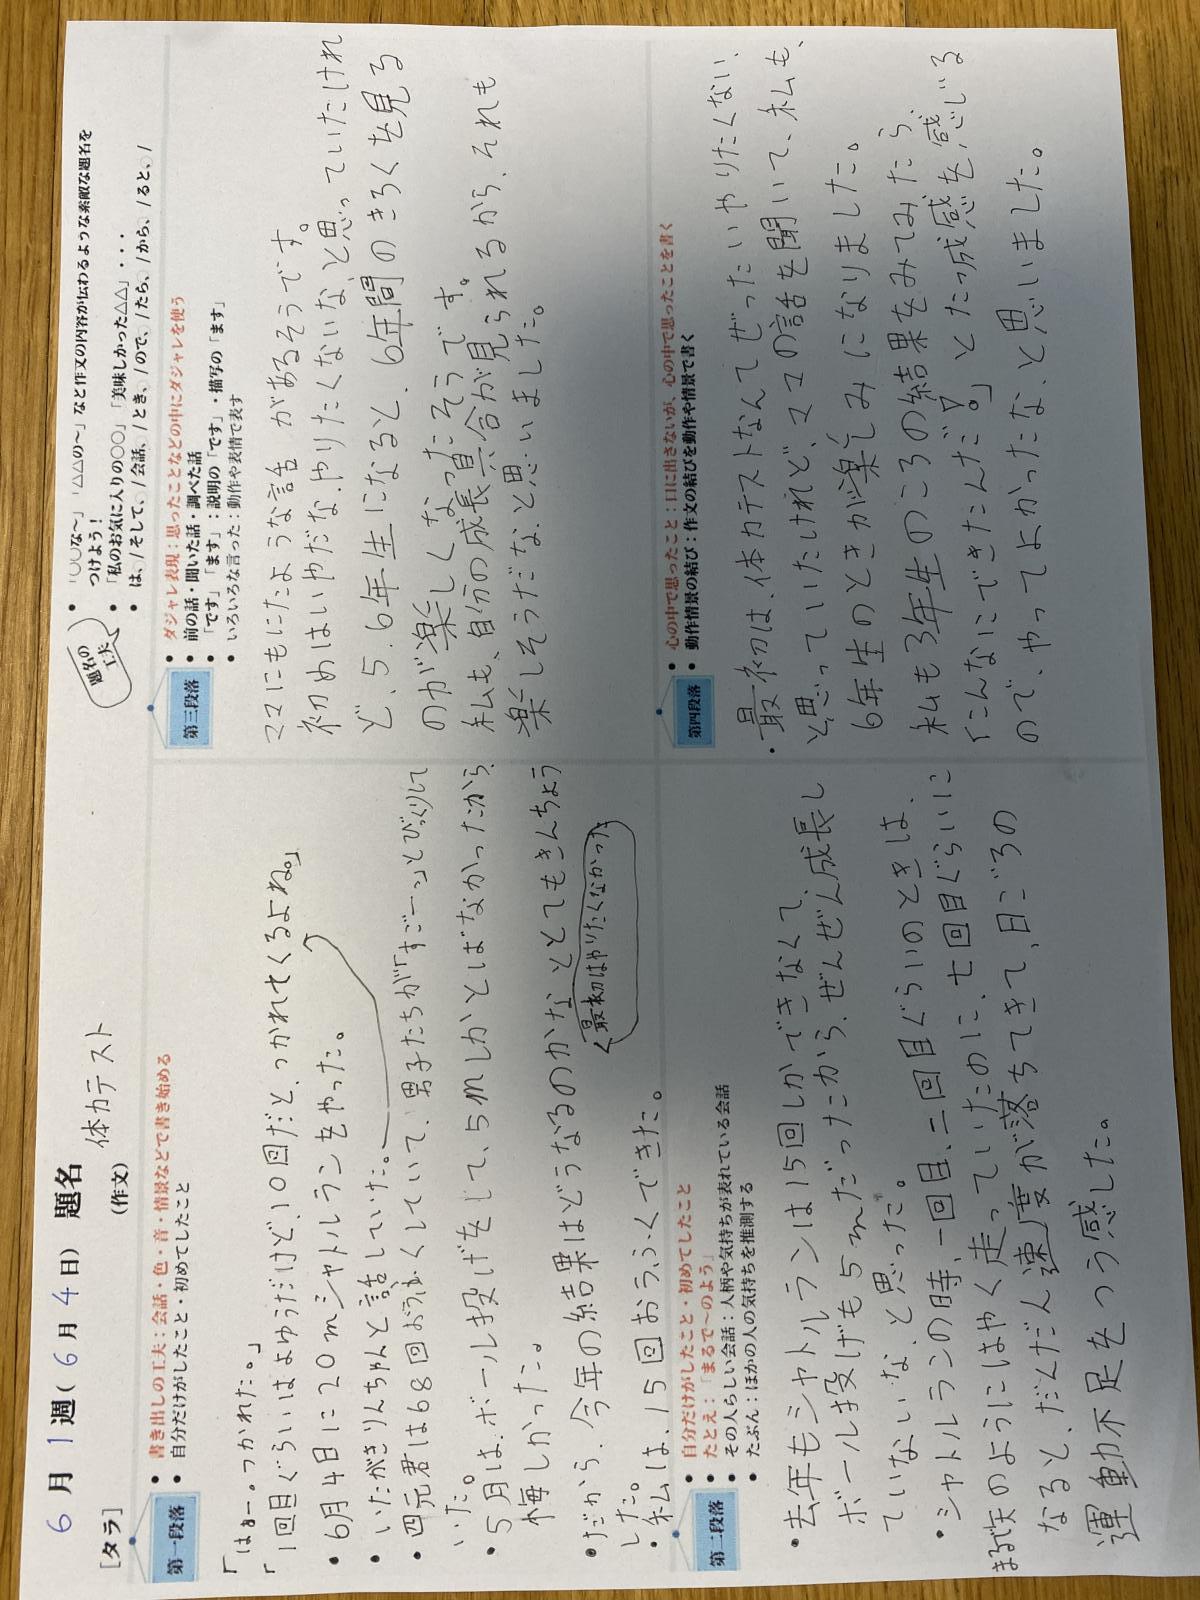 6月1週(6月4日) 題名
[タラ]
(作文) 体力テスト
題名の工夫
• 「○○な〜」「△△の〜」など作文の内容が伝わるような素敵な題名をつけよう！
• 「私のお気に入りの○○」「美味しかった△△」・・・
• は、/そして、/会話、/とき、/ので、/たら、/から、/ると、/
第一段落
• 書き出しの工夫：会話・色・音・情景などで書き始める
• 自分だけがしたこと・初めてしたこと
「はぁー。つかれた。」
「1回目ぐらいはよゆうだけど、10回だと、つかれてくるよね。」
• 6月4日に20mシャトルランをやった。
• いたがきりんちゃんと話していた。
• 四元君は68回がうごくしていて、男子たちが「すごーっ」とびっくりして
いた。
• 5月は、ボール投げをして、5mしかとばなかったから、
悔しかった。
• だから、今年の結果はどうなるのかなととてもきんちょう
した。
最初はやりたくなかった
• 私は、15回おうふくできた。
第二段落
• 自分だけがしたこと・初めてしたこと
• たとえ：「まるで〜のよう」
• その人らしい会話：人柄や気持ちが表れている会話
• たぶん：ほかの人の気持ちを推測する
• 去年もシャトルランは15回しかできなくて、
ボール投げも5mだったから、ぜんぜん成長し
ていないな、と思った。
• シャトルランの時、一回目、二回目ぐらいのときは、
まるで矢のようにはやく走っていたのに、七回目ぐらいに
なると、だんだん速度が落ちてきて、日ごろの
運動不足をつう感した。
第三段落
• ダジャレ表現：思ったことなどの中にダジャレを使う
• 前の話・聞いた話・調べた話
• 「です」「ます」：説明の「です」・描写の「ます」
• いろいろな言った：動作や表情で表す
ママにもにたような話があるそうです。
初めはいやだな、やりたくないな、と思っていたけれ
ど、5、6年生になると、6年間のきろくを見る
のが楽しくなったそうです。
私も、自分の成長具合が見られるから、それも
楽しそうだな、と思いました。
第四段落
• 心の中で思ったこと：口に出さないが、心の中で思ったことを書く
• 動作情景の結び：作文の結びを動作や情景で書く
• 最初は、体力テストなんてぜったいやりたくない、
と思っていたけれど、ママの話を聞いて、私も、
6年生のときが楽しみになりました。
私も3年生のころの結果をみてみたら、
「こんなにできたんだ!。」とたっ成感を感じる
ので、やってよかったな、と思いました。